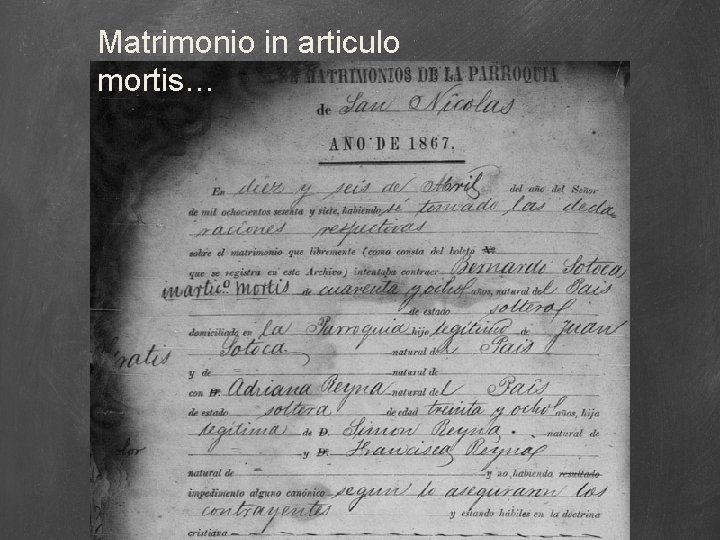 Matrimonio in articulo
mortis…
MATRIMONIOS DE LA PARROQUIA
de San Nicolas
AÑO DE 1867.
En diez y seis de Abril del año del Señor
de mil ochocientos sesenta y siete, habiendo sí tomado las decla-
raciones respectivas
sobre el matrimonio que libremente (como consta del boleto No
que se registra en este Archivo) intentaba contraer Bernardo Sotoca
martico mortis de cuarenta y ocho años, natural del Pais
de estado soltero
domiciliado en la Parroquia hijo legitimo de Juan
Sotoca natural del Pais
gratis
y de = natural de
con D. Adriana Reyna natural del Pais
de estado soltera de edad treinta y ocho años, hija
legitima de D. Simon Reyna natural de
= y D. Francisca Reyna
natural de = y no habiendo resultado
impedimento alguno canónico segun lo aseguraron los
contrayentes y estando hábiles en la doctrina
cristiana